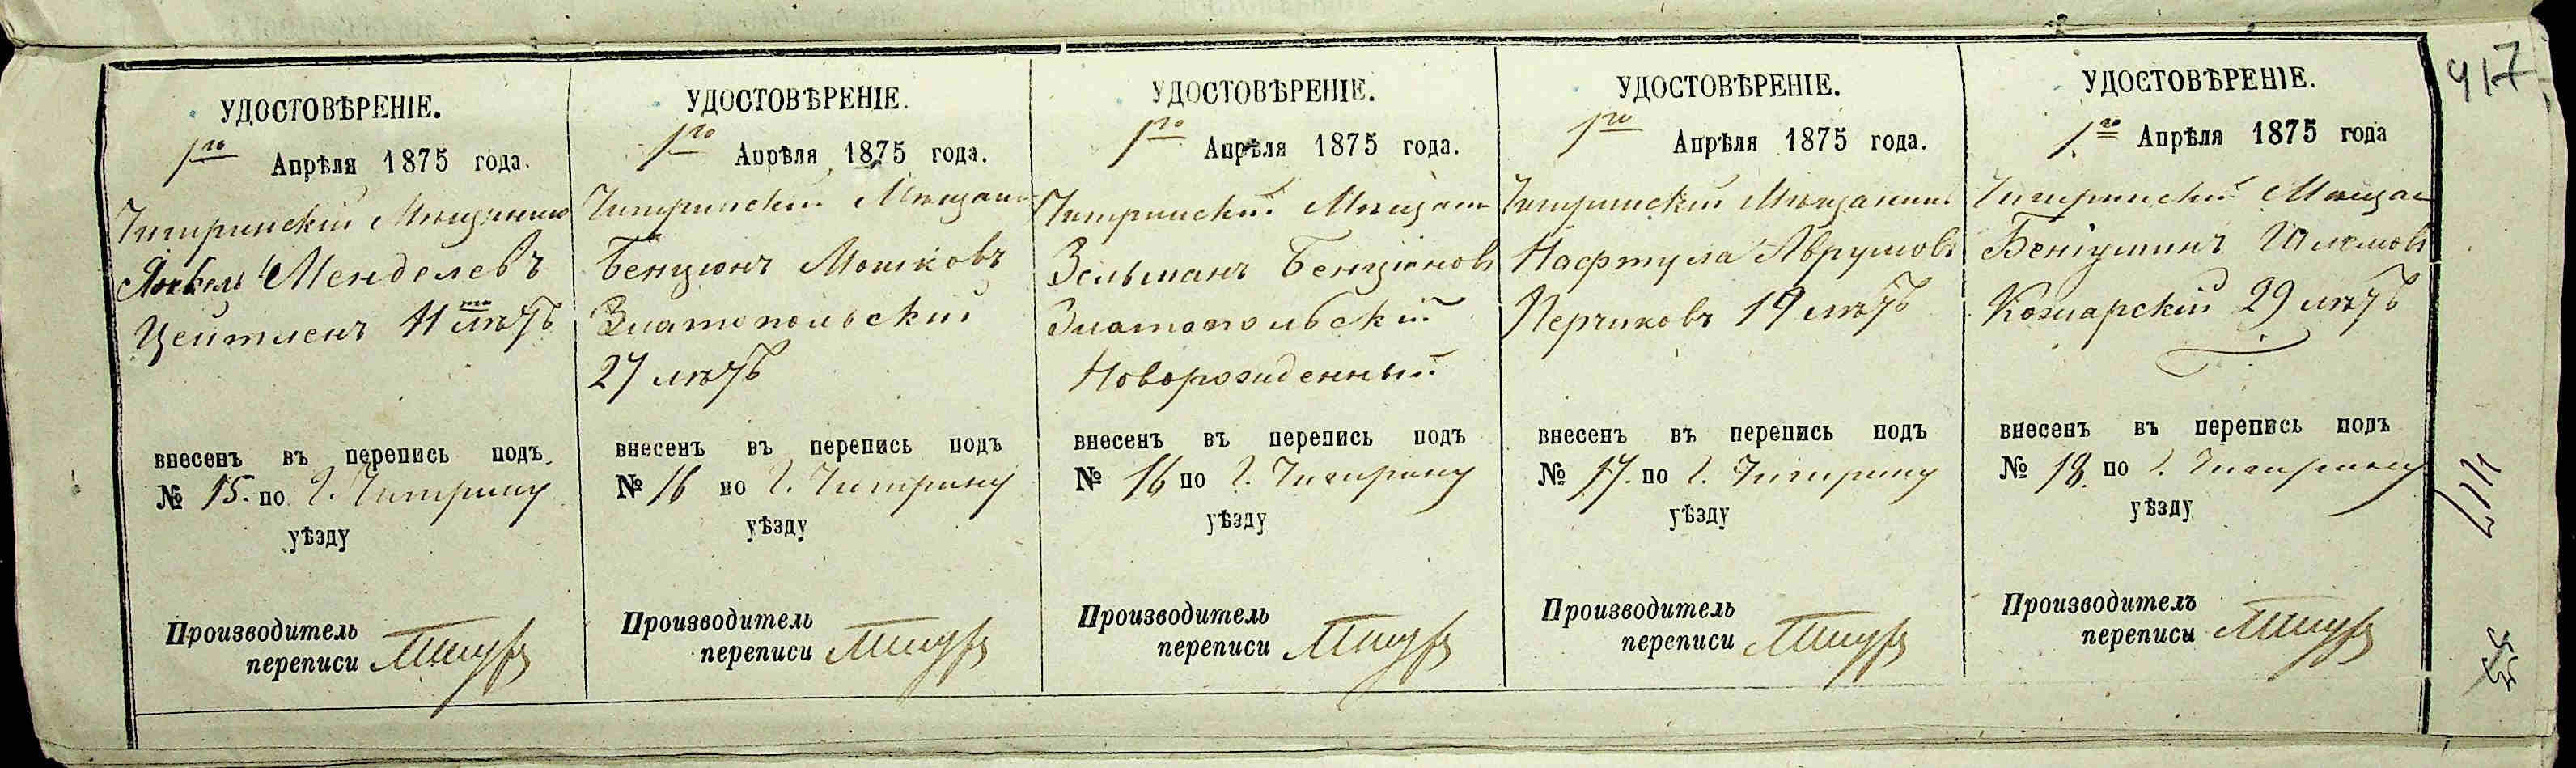 УДОСТОВѢРЕНІЕ.
1го Апрѣля 1875 года.
Чигринскій Мещанинъ
Янкель Менделевъ
Цейтленъ 11 лѣтъ
внесенъ въ перепись подъ
№ 15. по г. Чигрину
уѣзду
Производитель
переписи
УДОСТОВѢРЕНІЕ.
1го Апрѣля 1875 года.
Чигринскій Мещани
Бенционъ Мошковъ
Златопольскій
27 лѣтъ
внесенъ въ перепись подъ
№ 16 по г. Чигрину
уѣзду
Производитель
переписи
УДОСТОВѢРЕНІЕ.
1го Апрѣля 1875 года.
Чигринскій Мещани
Зельманъ Бенціоновъ
Златопольскій
Новорожденный
внесенъ въ перепись подъ
№ 16 по г. Чигрину
уѣзду
Производитель
переписи
УДОСТОВѢРЕНІЕ.
1го Апрѣля 1875 года.
Чигринскій Мещанинъ
Нафтула Аврумовъ
Перчиковъ 19 лѣтъ
внесенъ въ перепись подъ
№ 17. по г. Чигрину
уѣзду
Производитель
переписи
УДОСТОВѢРЕНІЕ.
1го Апрѣля 1875 года
Чигринскій Мещан
Беніуминъ Шлемовъ
29 лѣтъ
внесенъ въ перепись подъ
№ 18. по г. Чигрину
уѣзду
Производитель
переписи
417